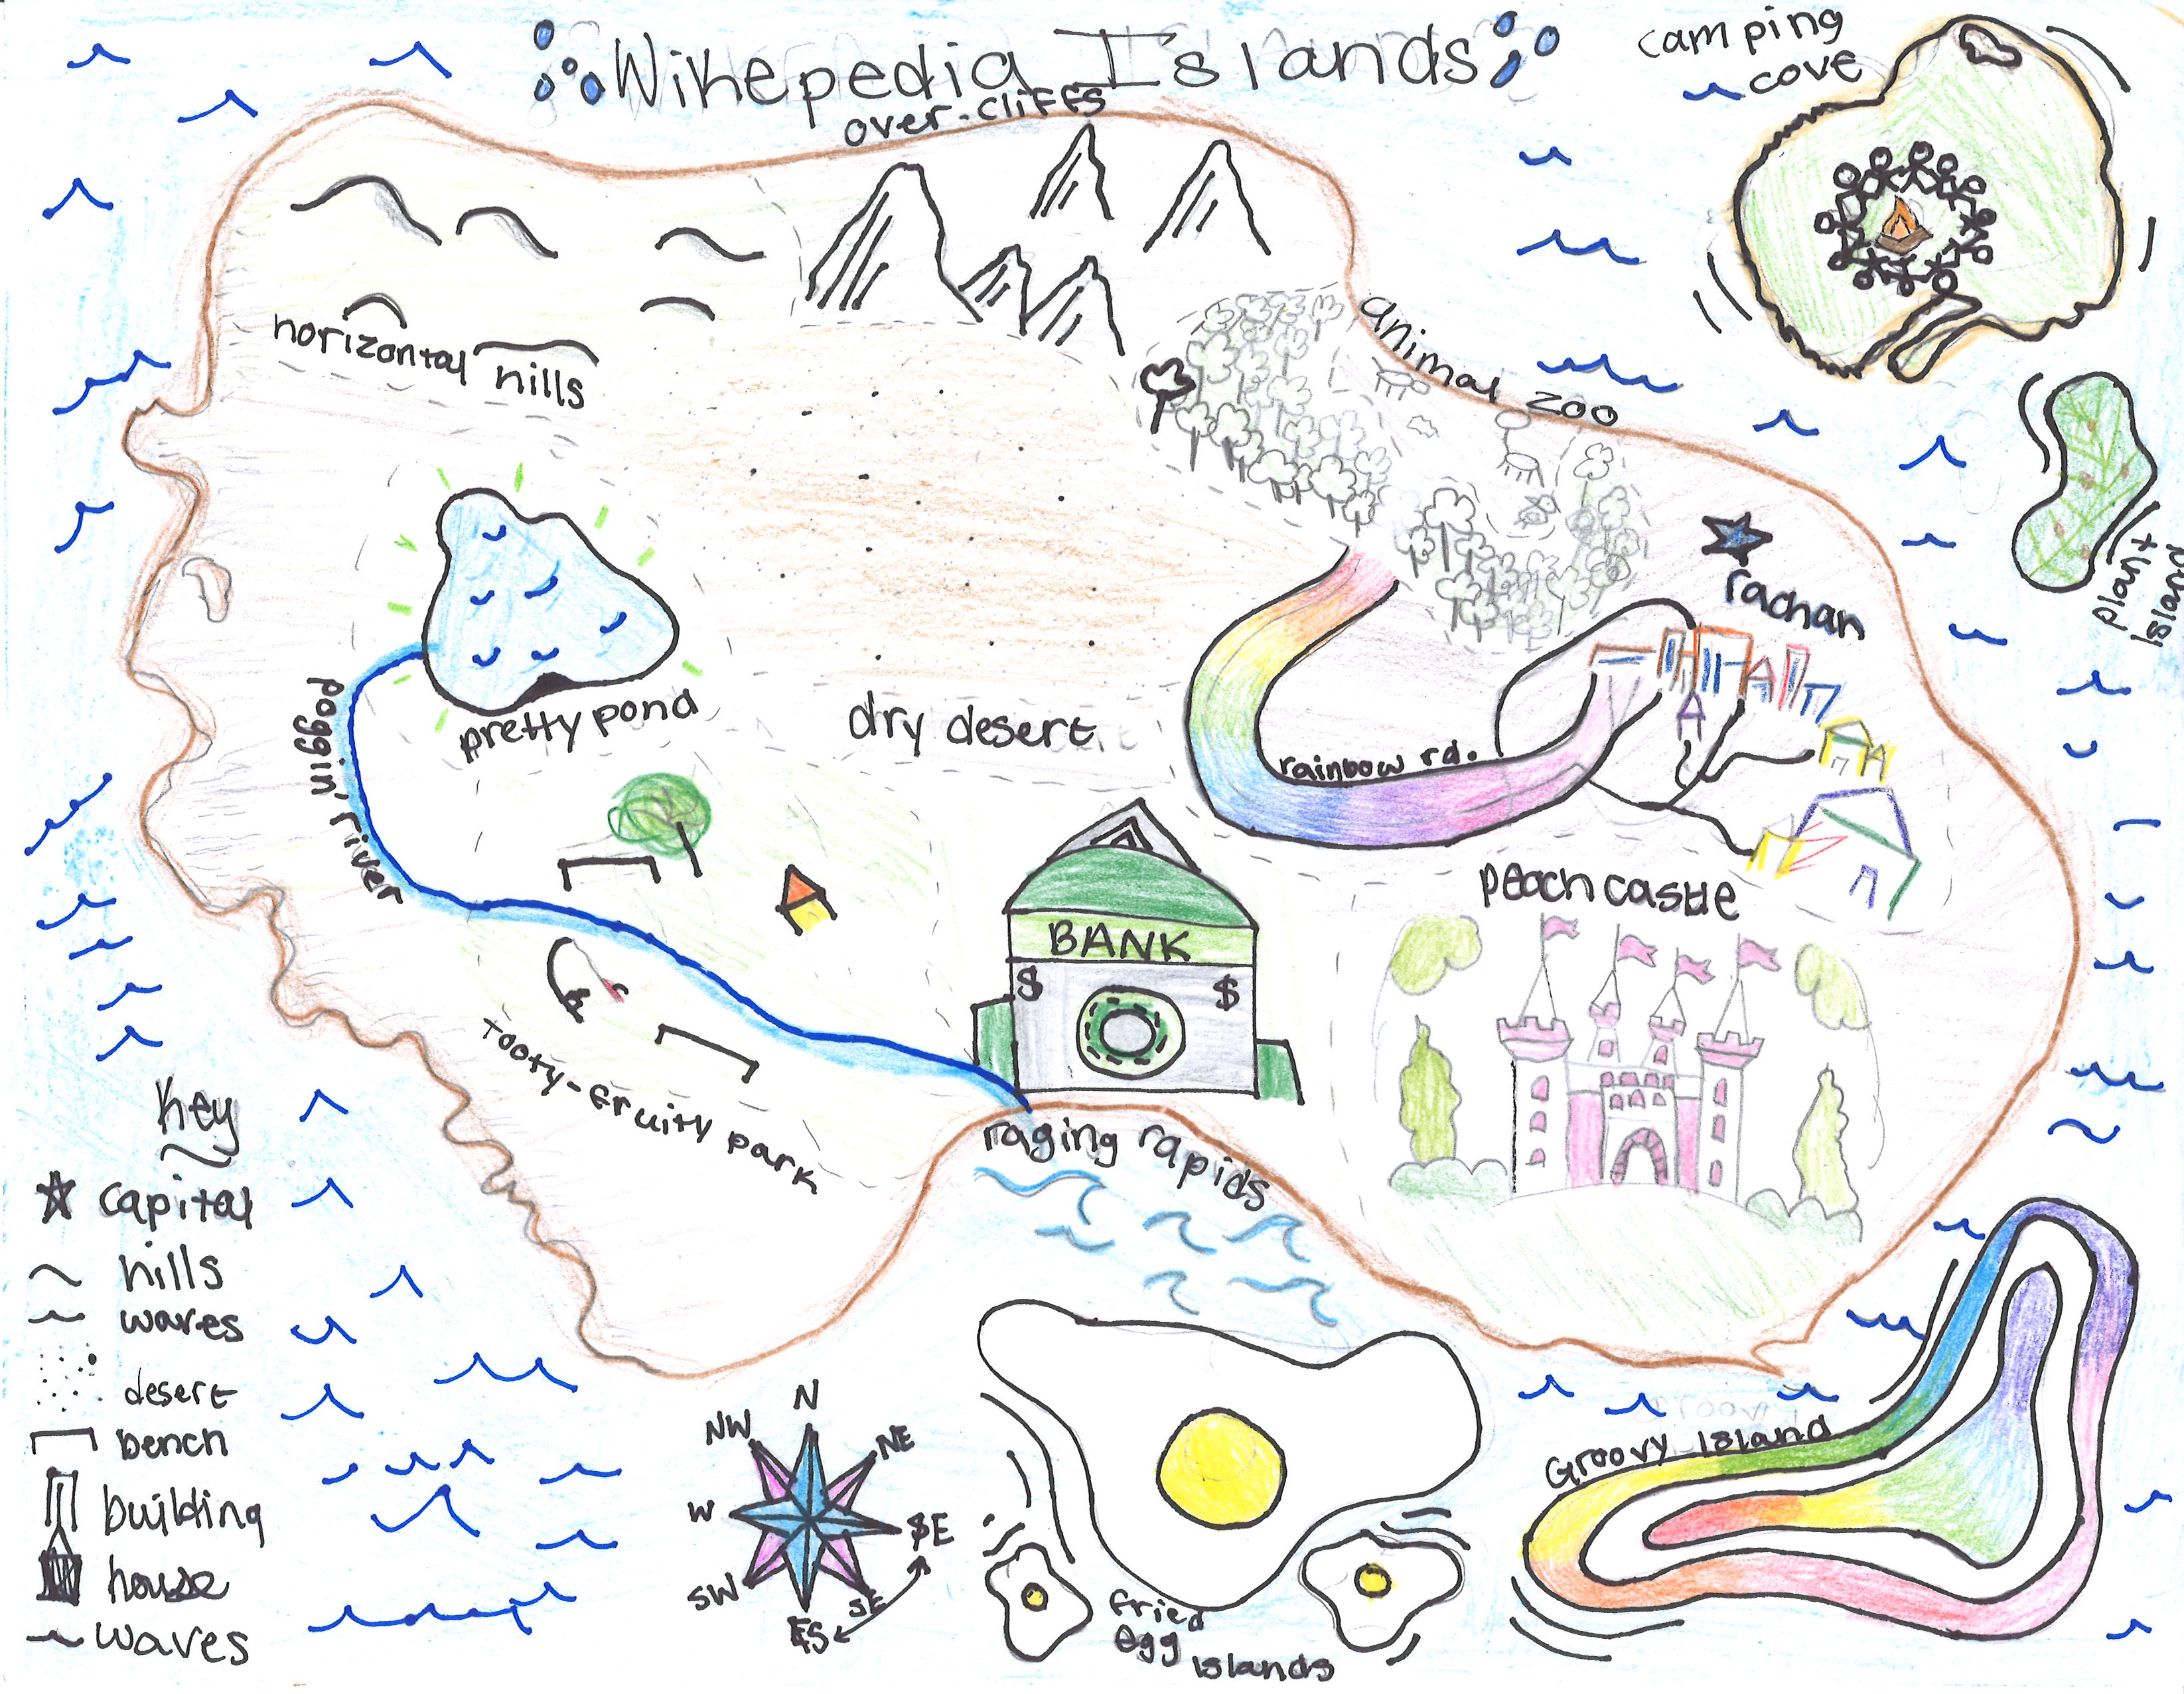 Wikepedia Islands
over-cliffs
camping
cove
horizontal hills
animal zoo
plant
Island
rachan
pretty pond
poggin' river
dry desert
rainbow rd.
peach castle
BANK
$ $
Tooty-fruity park
raging rapids
Key
capital
hills
waves
desert
bench
building
house
waves
N
NW
NE
W
E
SW
SE
S
Groovy Island
fried
egg
islands